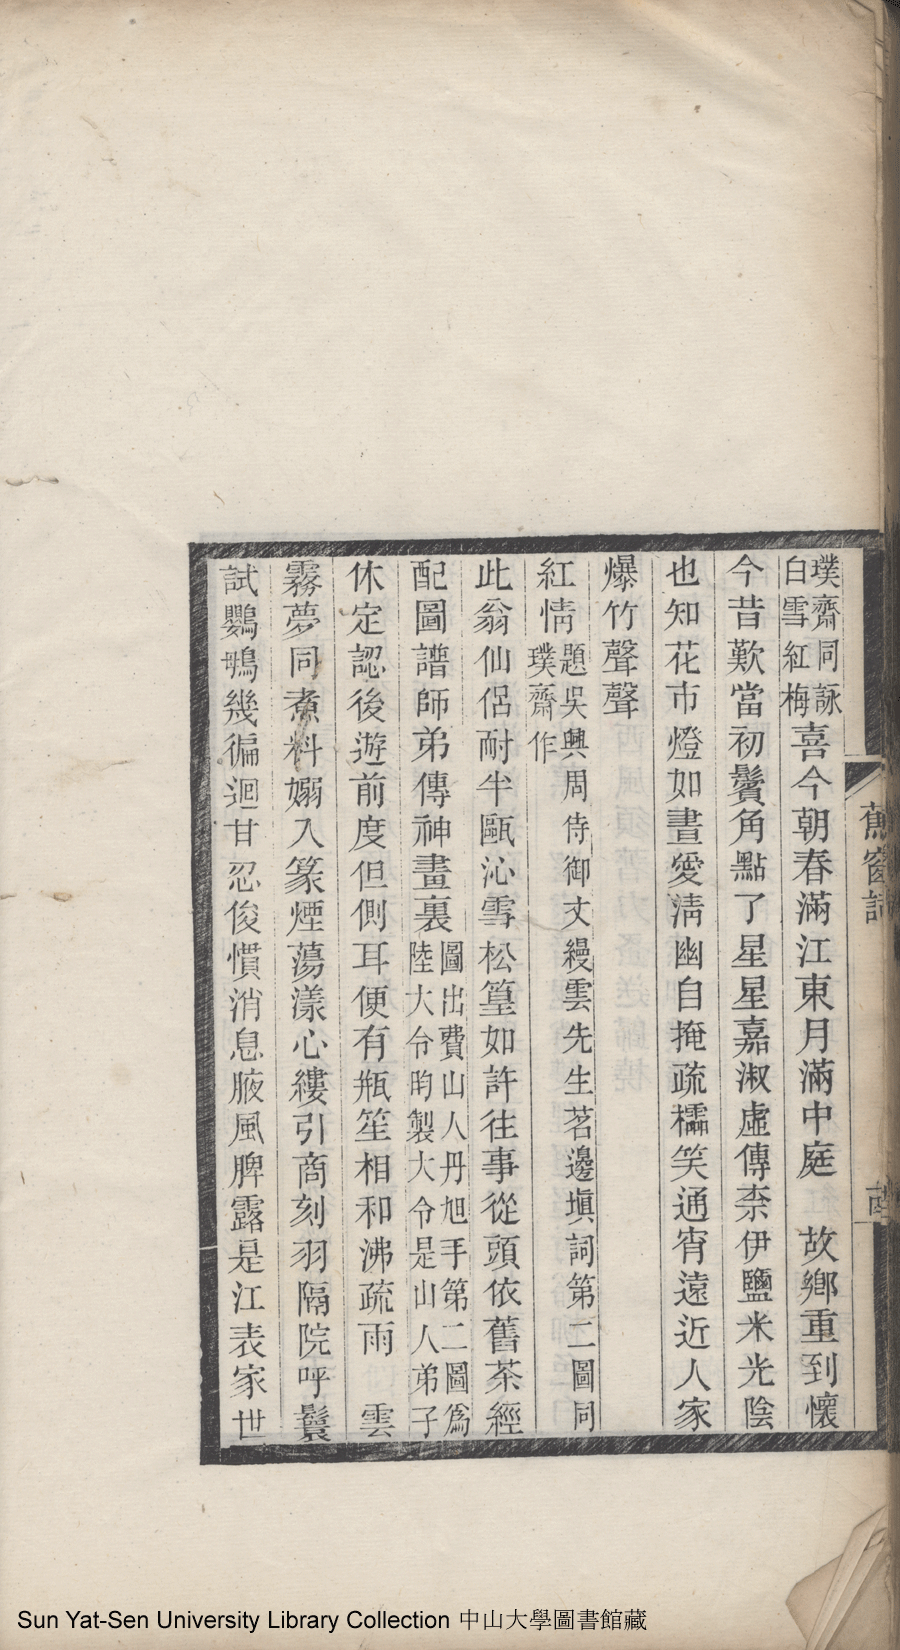 璞齋同詠
白雪紅梅
喜今朝春滿江東月滿中庭　故鄉重到懷
今昔歎當初鬢角點了星星嘉淑虛傳柰伊鹽米光陰
也知花市燈如晝愛淸幽自掩疏櫺笑通宵遠近人家
爆竹聲聲
紅情
題吳興周侍御文縵雲先生茗邊塡詞第二圖同
璞齋作
此翁仙侶耐半甌沁雪松篁如許往事從頭依舊茶經
配圖譜師弟傳神畫裏
圖出費山人丹旭手第二圖爲
陸大令昀製大令是山人弟子
休定認後遊前度但側耳便有瓶笙相和沸疏雨　雲
霧夢同煮料嫋入篆煙蕩漾心縷引商刻羽隔院呼鬟
試鸚鵡幾徧迴甘忍俊慣消息腋風脾露是江表家世
Sun Yat-Sen University Library Collection 中山大學圖書館藏